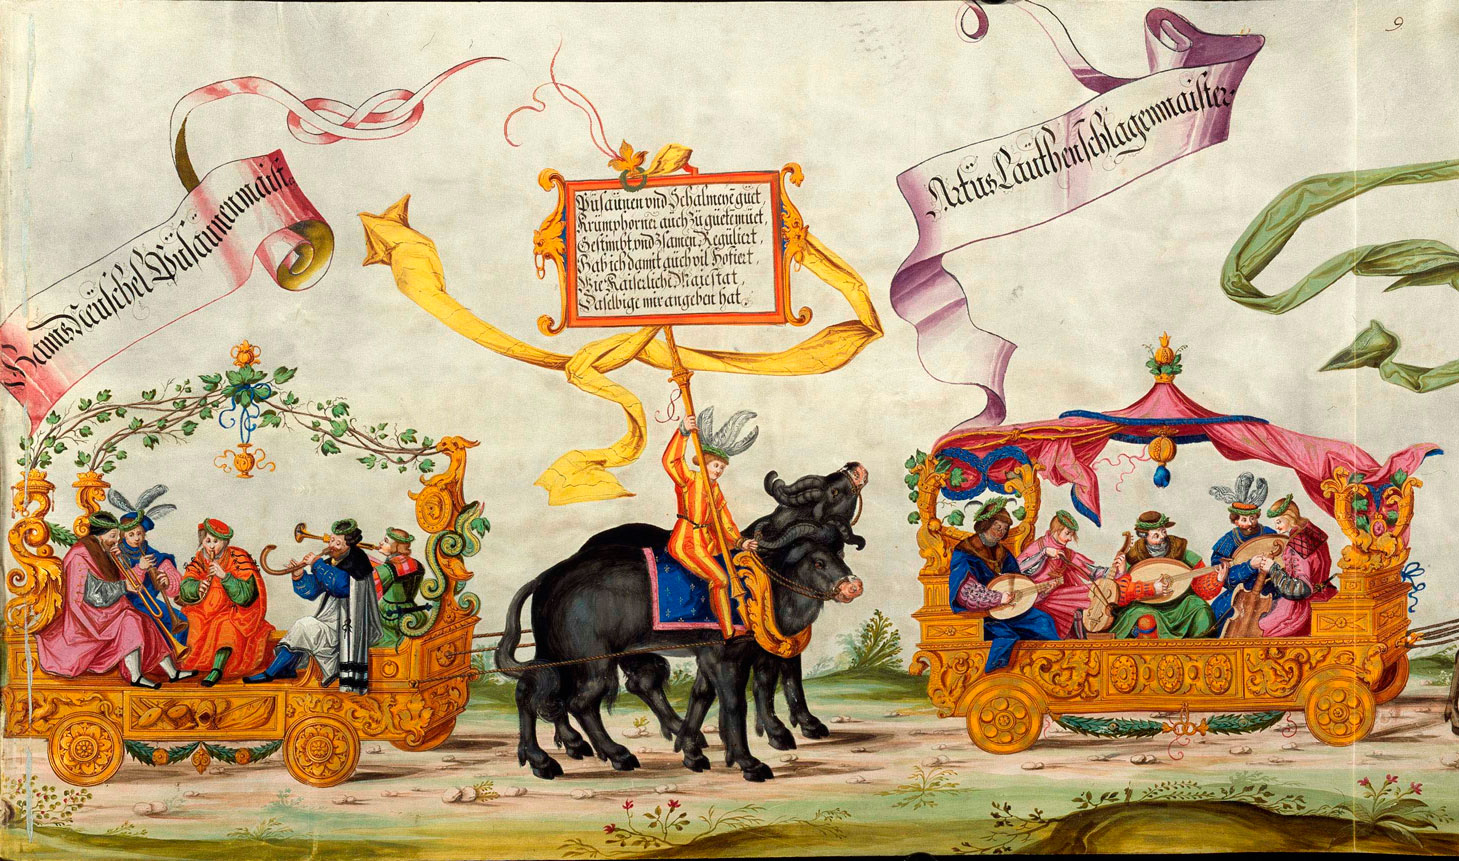 Hanns Neüschel Püsaunenmaist.
Püsaünen vnd Schalmeyē güet,
Krümphorner auch zü güetemüet,
Gestimbt, vnd Zsamen Reguliert,
Hab ich damit auch vil Hofiert,
Wie Kaiserliche Maiestat,
Daselbige mir angeben hat.
Artüs Laüthenschlagenmaister.
9